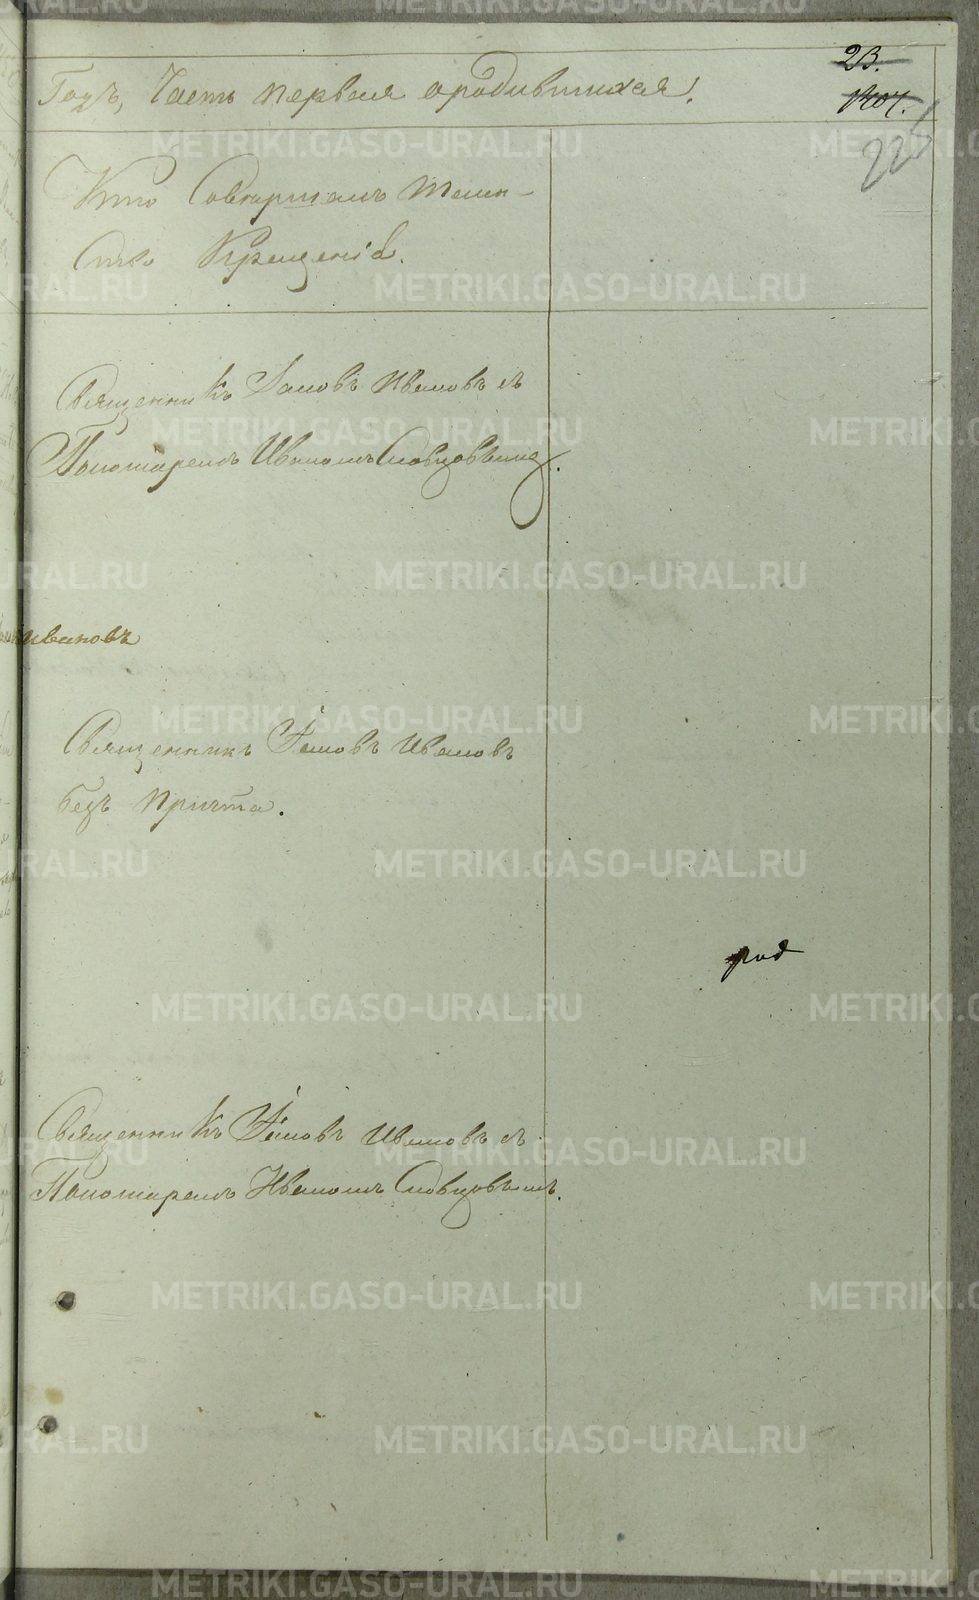 23.
Годъ, Часть первая ородившихся.
225
Кто Совершалъ Таин-
Ство Крещенія.
Священникъ Іаковъ Ивановъ съ
Пономаремъ Иваномъ Словцовымъ.
Ивановъ
Священникъ Іаковъ Ивановъ
безъ причта.
Священникъ Іаковъ Ивановъ съ
Пономаремъ Иваномъ Словцовымъ.
METRIKI.GASO-URAL.RU